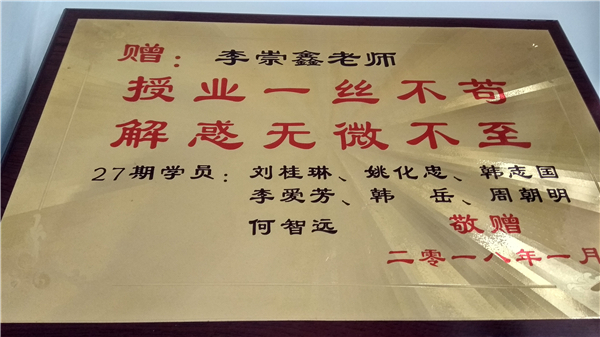 赠：李崇鑫老师
授业一丝不苟
解惑无微不至
27期学员：刘桂琳、姚化忠、韩志国
李爱芳、韩岳、周朝明
何智远 敬赠
二零一八年一月